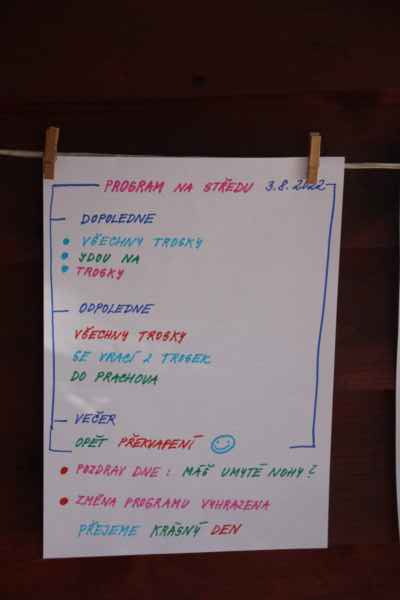 PROGRAM NA STŘEDU 3.8.2022
DOPOLEDNE
VŠECHNY TROSKY
JDOU NA
TROSKY
ODPOLEDNE
VŠECHNY TROSKY
SE VRACÍ Z TROSEK
DO PRACHOVA
VEČER
OPĚT PŘEKVAPENÍ
POZDRAV DNE: MÁŠ UMYTÉ NOHY?
ZMĚNA PROGRAMU VYHRAZENA
PŘEJEME KRÁSNÝ DEN